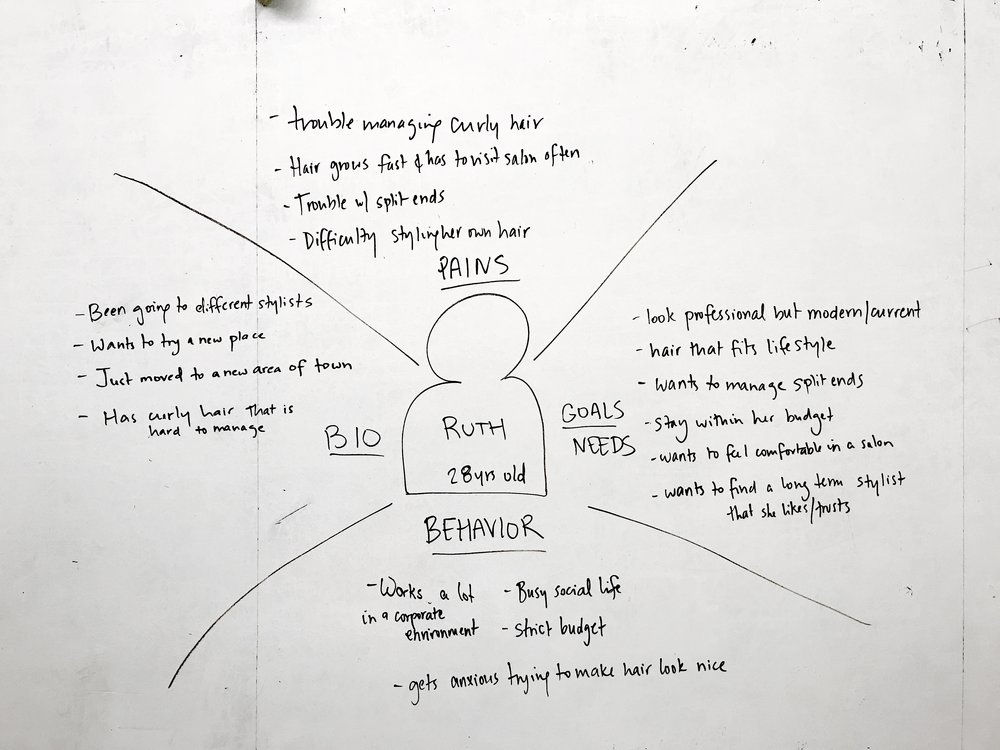 - trouble managing curly hair
- Hair grows fast & has to visit salon often
- Trouble w/ split ends
- Difficulty styling her own hair
PAINS
- Been going to different stylists
- Wants to try a new place
- Just moved to a new area of town
- Has curly hair that is
hard to manage
BIO
RUTH
28 yrs old
GOALS
NEEDS
- look professional but modern/current
- hair that fits lifestyle
- wants to manage split ends
- stay within her budget
- wants to feel comfortable in a salon
- wants to find a long term stylist
that she likes/trusts
BEHAVIOR
- Works a lot
in a corporate
environment
- Busy social life
- strict budget
- gets anxious trying to make hair look nice